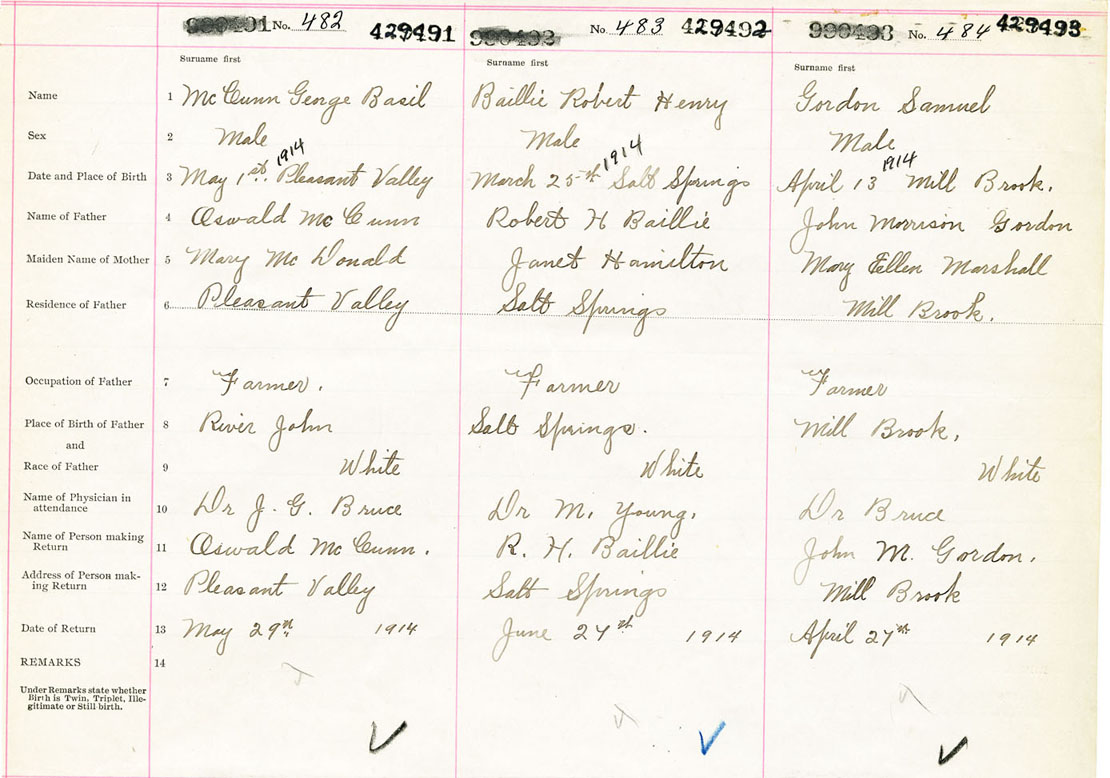 No. 482 429491 No. 483 429492 No. 484 429493
Surname first Surname first Surname first
Name 1 McCunn George Basil Baillie Robert Henry Gordon Samuel
Sex 2 Male Male Male
1914 1914 1914
Date and Place of Birth 3 May 1st. Pleasant Valley March 25th Salt Springs April 13 Mill Brook.
Name of Father 4 Oswald McCunn Robert H Baillie John Morrison Gordon
Maiden Name of Mother 5 Mary McDonald Janet Hamilton Mary Ellen Marshall
Residence of Father 6 Pleasant Valley Salt Springs Mill Brook.
Occupation of Father 7 Farmer. Farmer Farmer
Place of Birth of Father 8 River John Salt Springs. Mill Brook.
and
Race of Father 9 White White White
Name of Physician in
attendance 10 Dr J. G. Bruce Dr M. Young. Dr Bruce
Name of Person making
Return 11 Oswald McCunn. R. H. Baillie John M. Gordon.
Address of Person mak-
ing Return 12 Pleasant Valley Salt Springs Mill Brook
Date of Return 13 May 29th 1914 June 27th 1914 April 27th 1914
REMARKS 14
Under Remarks state whether
Birth is Twin, Triplet, Ille-
gitimate or Still birth.